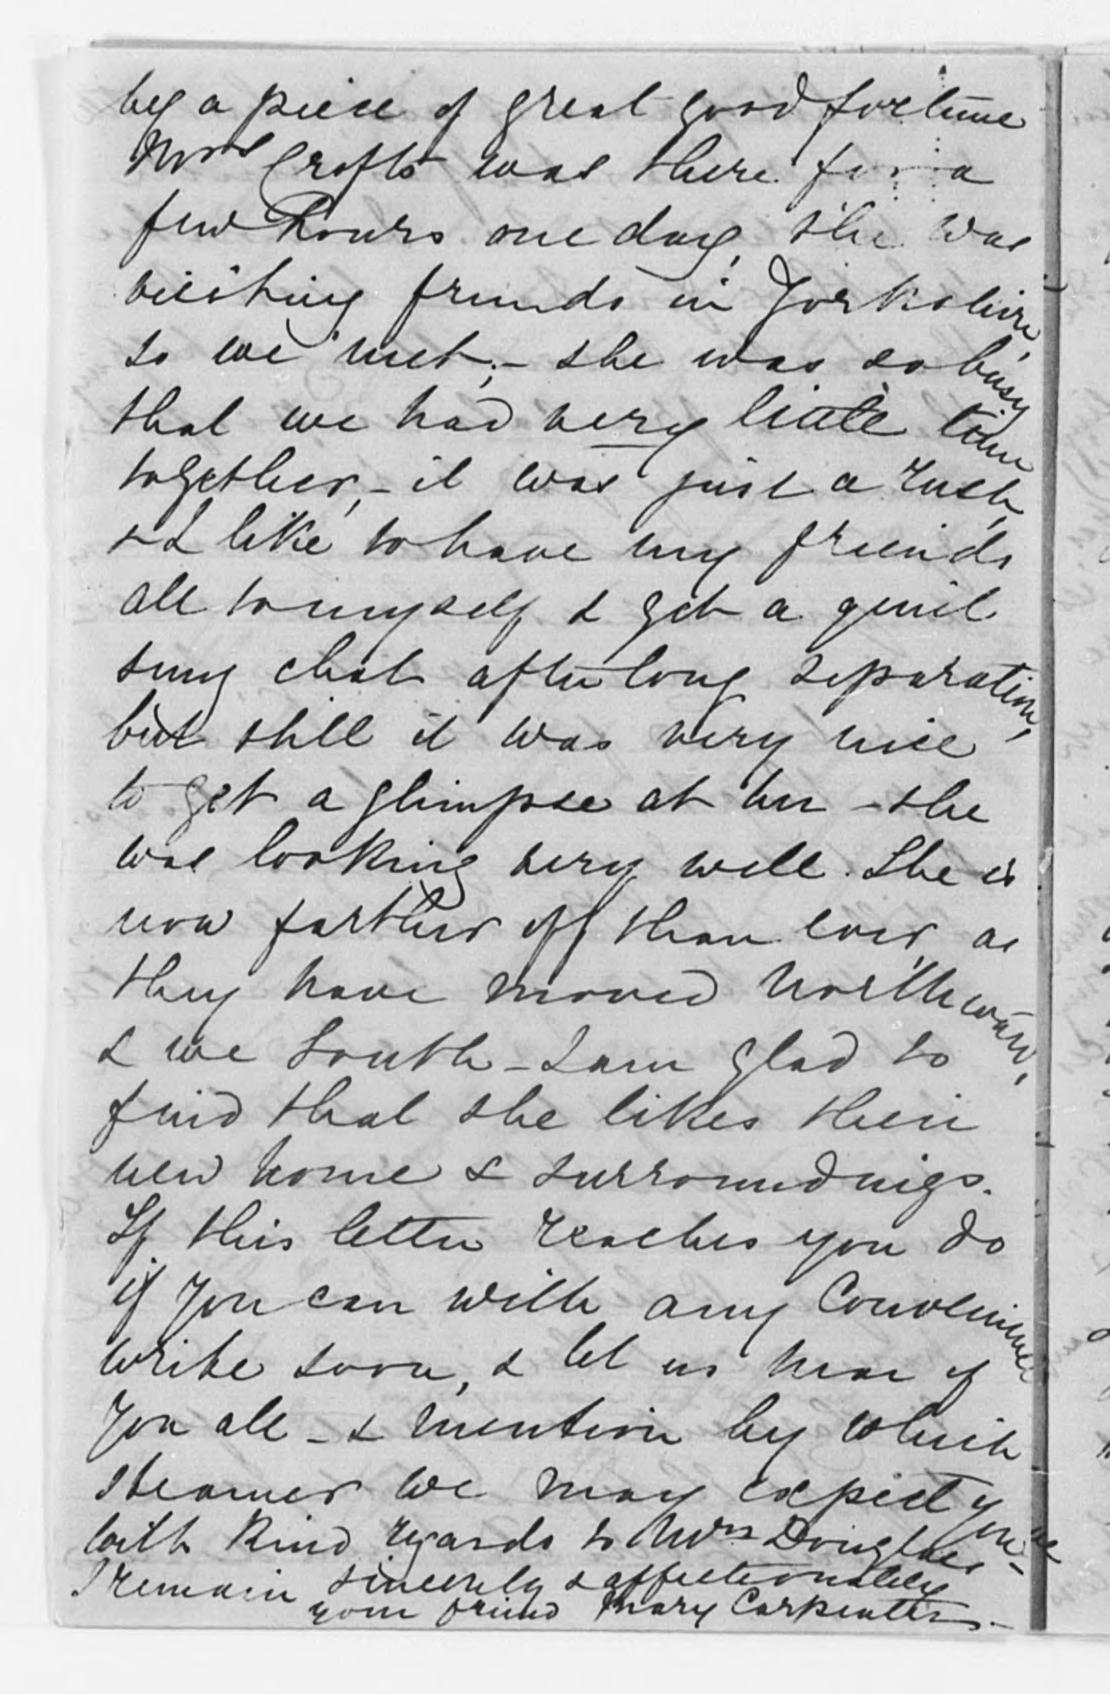 by a piece of great good fortune
Mrs Crofts was there for a
few hours one day, she was
visiting friends in Yorkshire,
so we met, - she was so busy
that we had very little time
together, - it was just a rush,
& I like to have my friends
all to myself & get a quiet
snug chat after long separation,
but still it was very nice
to get a glimpse at her - she
was looking very well. She is
now farther off than ever, as
they have moved Northward,
& we South - I am glad to
find that she likes their
new home & surroundings.
If this letter reaches you do
if you can with any convenience
write soon, & let us hear of
you all - & mention by which
steamer we may expect you -
with kind regards to Mrs Douglass
I remain sincerely & affectionately
your friend Mary Carpenter -